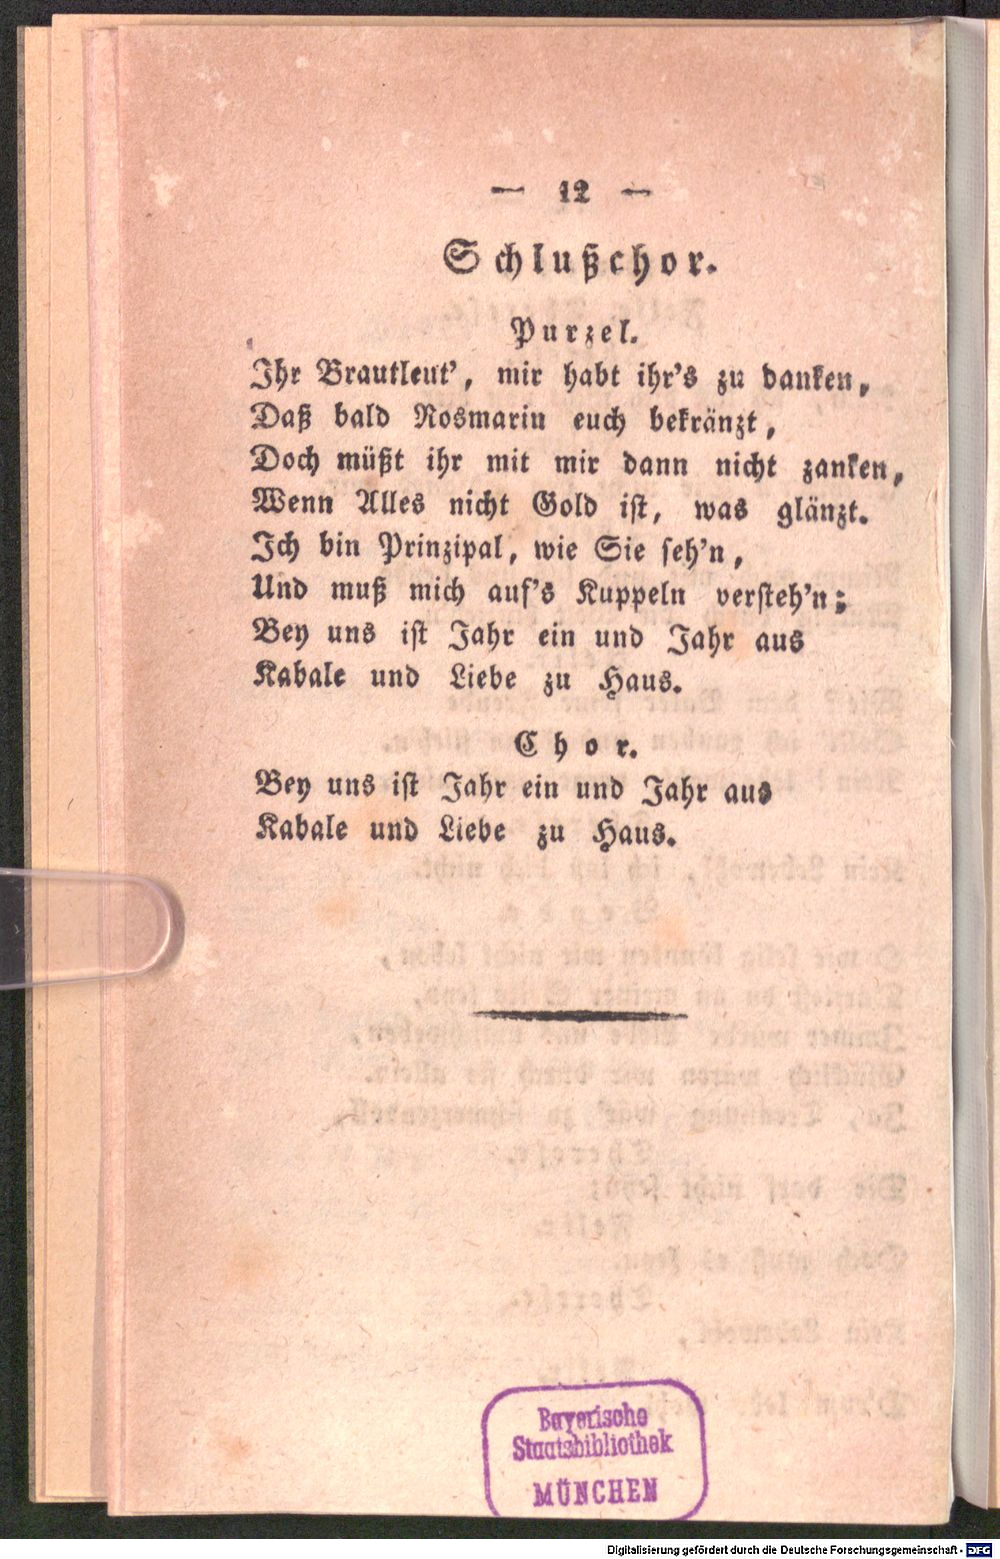 — 12 —
Schlußchor.
Purzel.
Ihr Brautleut', mir habt ihr's zu danken,
Daß bald Rosmarin euch bekränzt,
Doch müßt ihr mit mir dann nicht zanken,
Wenn Alles nicht Gold ist, was glänzt.
Ich bin Prinzipal, wie Sie seh'n,
Und muß mich auf's Kuppeln versteh'n;
Bey uns ist Jahr ein und Jahr aus
Kabale und Liebe zu Haus.
Chor.
Bey uns ist Jahr ein und Jahr aus
Kabale und Liebe zu Haus.
Bayerische
Staatsbibliothek
MÜNCHEN
Digitalisierung gefördert durch die Deutsche Forschungsgemeinschaft - DFG